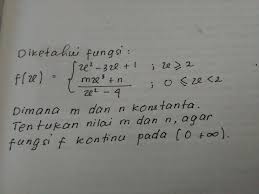 Diketahui fungsi:
f(x) = { x² - 3x + 1 ; x ≥ 2
mx³ + n / x² - 4 ; 0 ≤ x < 2
Dimana m dan n konstanta.
Tentukan nilai m dan n, agar
fungsi f kontinu pada [0 +∞).